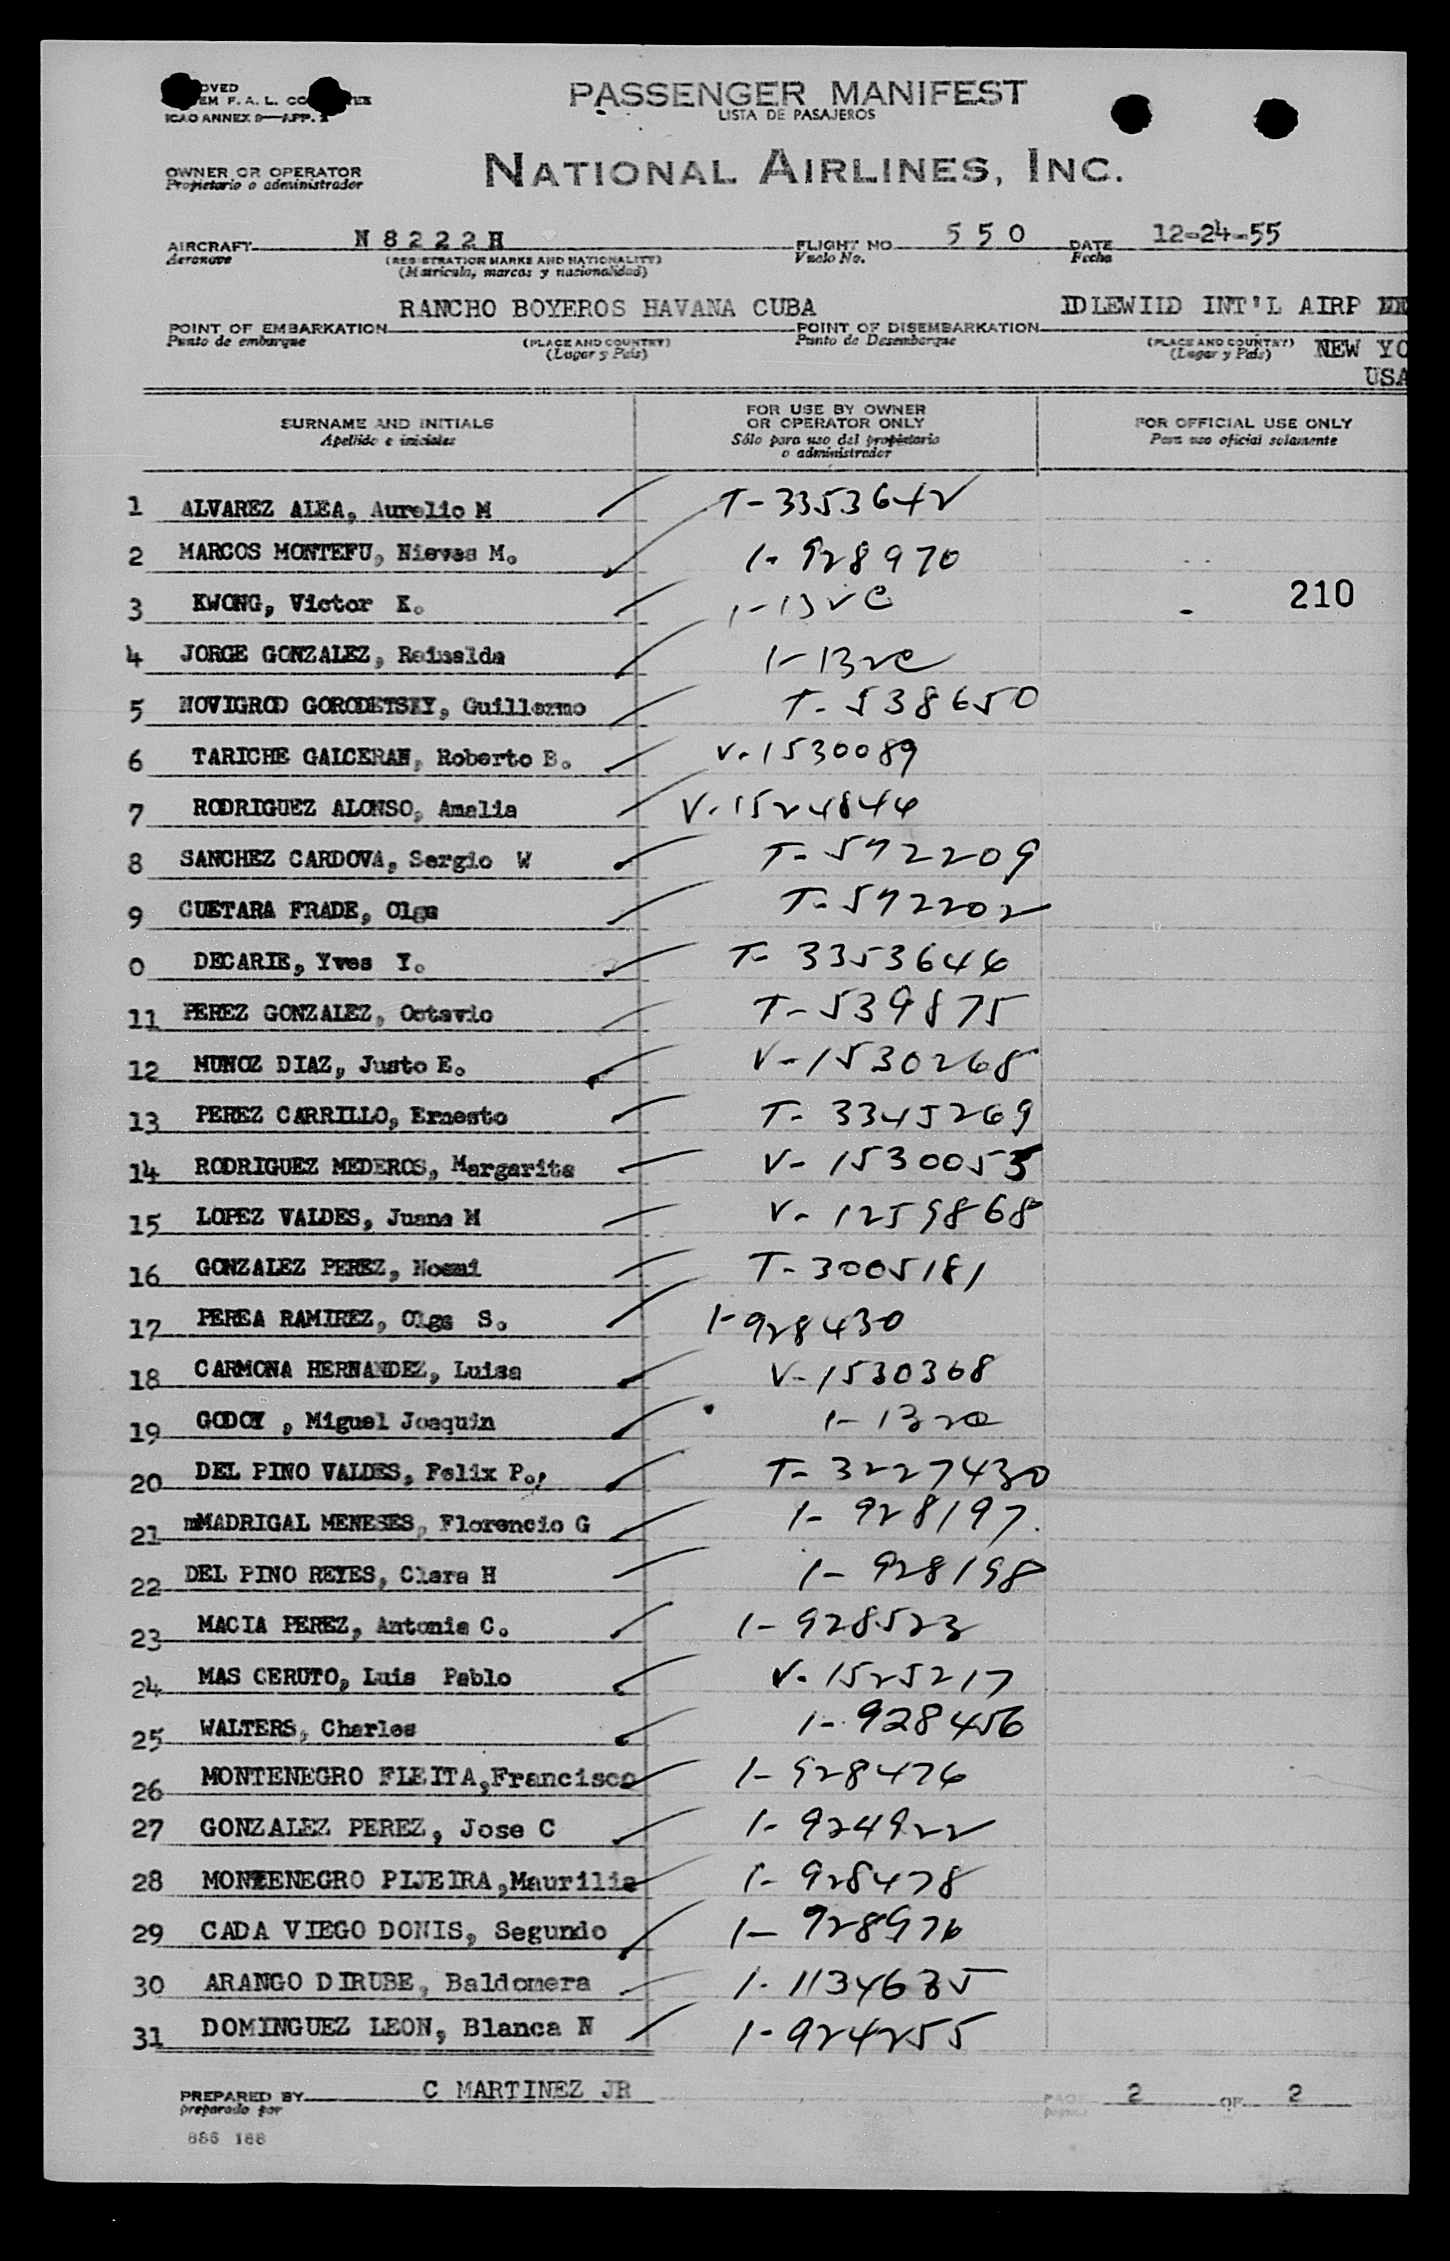 PASSENGER MANIFEST
LISTA DE PASAJEROS
ICAO ANNEX 9—APP.
OWNER OR OPERATOR
Propietario o administrador
NATIONAL AIRLINES, INC.
AIRCRAFT N 8 2 2 2 H FLIGHT NO 5 5 0 DATE 12-24-55
Aeronave (REGISTRATION MARKS AND NATIONALITY) Vuelo No. Fecha
(Matrícula, marcas y nacionalidad)
RANCHO BOYEROS HAVANA CUBA IDLEWIID INT'L AIRP
POINT OF EMBARKATION POINT OF DISEMBARKATION
Punto de embarque (PLACE AND COUNTRY) Punto de Desembarque (PLACE AND COUNTRY) NEW YO
(Lugar y País) (Lugar y País)
USA
SURNAME AND INITIALS FOR USE BY OWNER OR OPERATOR ONLY FOR OFFICIAL USE ONLY
Apellido e iniciales Sólo para uso del propietario o administrador Para uso oficial solamente
1 ALVAREZ ALEA, Aurelio M T-3353642
2 MARCOS MONTEFU, Nieves M. 1-928970
3 KWONG, Victor K. 210
4 JORGE GONZALEZ, Reinalda
5 NOVIGROD GORODETSKY, Guillermo T-538650
6 TARICHE GALCERAN, Roberto B. V-1530089
7 RODRIGUEZ ALONSO, Amalia V-1524844
8 SANCHEZ CARDOVA, Sergio W T-572209
9 CUETARA FRADE, Olga T-572202
0 DECARIE, Yves Y. T-3353646
11 PEREZ GONZALEZ, Octavio T-539875
12 MUNOZ DIAZ, Justo E. V-1530268
13 PEREZ CARRILLO, Ernesto T-3345269
14 RODRIGUEZ MEDEROS, Margarita V-1530053
15 LOPEZ VALDES, Juana M V-1259868
16 GONZALEZ PEREZ, Noemi T-3005181
17 PEREA RAMIREZ, Olga S. 1-928430
18 CARMONA HERNANDEZ, Luisa V-1530368
19 GODOY , Miguel Joaquin
20 DEL PINO VALDES, Felix P., T-3227430
21 mMADRIGAL MENESES, Florencio G 1-928197
22 DEL PINO REYES, Clara H 1-928198
23 MACIA PEREZ, Antonia C. 1-928523
24 MAS CERUTO, Luis Pablo V-1525217
25 WALTERS, Charles 1-928456
26 MONTENEGRO FLEITA,Francisco 1-928476
27 GONZALEZ PEREZ, Jose C 1-924922
28 MONTENEGRO PIJEIRA,Maurilia 1-928478
29 CADA VIEGO DONIS, Segundo 1-928976
30 ARANGO DIRUBE, Baldomera 1-1134635
31 DOMINGUEZ LEON, Blanca N 1-924255
PREPARED BY C MARTINEZ JR PAGE 2 OF 2
preparado por
886 188